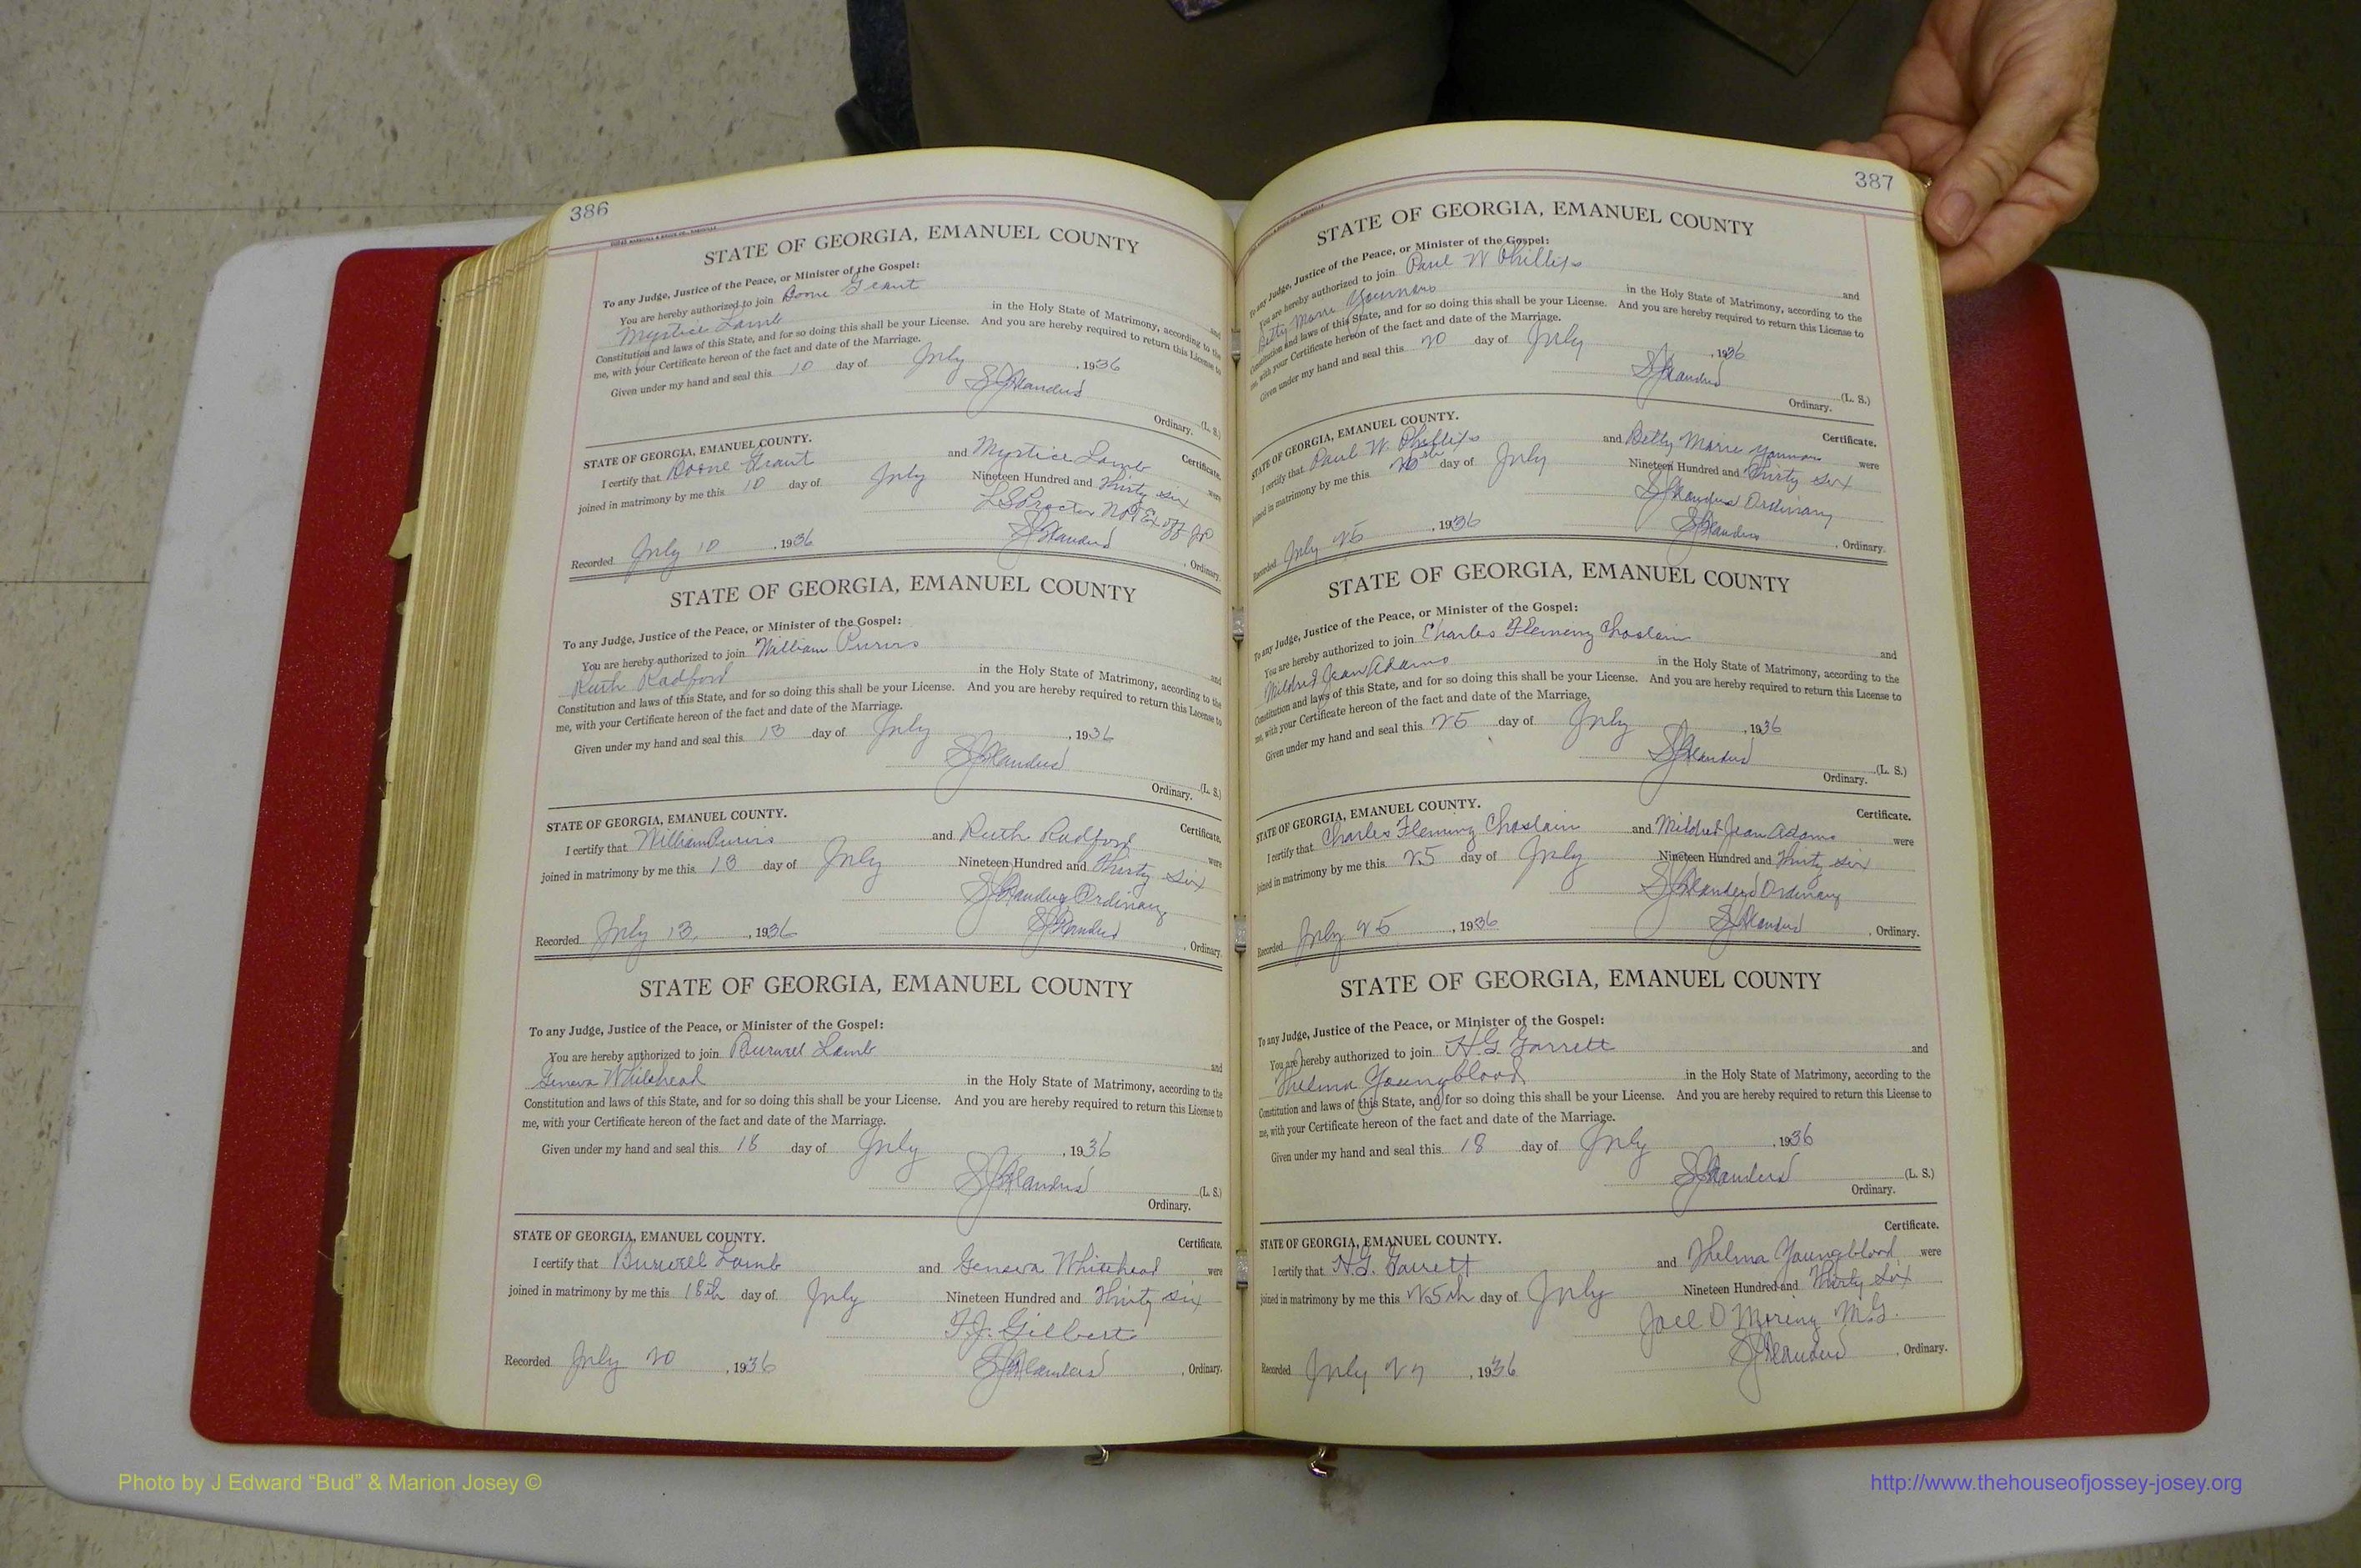 386
STATE OF GEORGIA, EMANUEL COUNTY
To any Judge, Justice of the Peace, or Minister of the Gospel:
You are hereby authorized to join Boone Grant and
Mystice Lamb in the Holy State of Matrimony, according to the
Constitution and laws of this State, and for so doing this shall be your License. And you are hereby required to return this License to
me, with your Certificate hereon of the fact and date of the Marriage.
Given under my hand and seal this 10 day of July, 1936
(L. S.)
Ordinary.
STATE OF GEORGIA, EMANUEL COUNTY. Certificate.
I certify that Boone Grant and Mystice Lamb were
joined in matrimony by me this 10 day of July Nineteen Hundred and Thirty six
L S Proctor N P & Ex off J P
Recorded July 10, 1936, Ordinary.
STATE OF GEORGIA, EMANUEL COUNTY
To any Judge, Justice of the Peace, or Minister of the Gospel:
You are hereby authorized to join William Purvis and
Ruth Radford in the Holy State of Matrimony, according to the
Constitution and laws of this State, and for so doing this shall be your License. And you are hereby required to return this License to
me, with your Certificate hereon of the fact and date of the Marriage.
Given under my hand and seal this 13 day of July, 1936
(L. S.)
Ordinary.
STATE OF GEORGIA, EMANUEL COUNTY. Certificate.
I certify that William Purvis and Ruth Radford were
joined in matrimony by me this 13 day of July Nineteen Hundred and Thirty six
Ordinary
Recorded July 13, 1936, Ordinary.
STATE OF GEORGIA, EMANUEL COUNTY
To any Judge, Justice of the Peace, or Minister of the Gospel:
You are hereby authorized to join Burwell Lamb and
Geneva Whitehead in the Holy State of Matrimony, according to the
Constitution and laws of this State, and for so doing this shall be your License. And you are hereby required to return this License to
me, with your Certificate hereon of the fact and date of the Marriage.
Given under my hand and seal this 18 day of July, 1936
(L. S.)
Ordinary.
STATE OF GEORGIA, EMANUEL COUNTY. Certificate.
I certify that Burwell Lamb and Geneva Whitehead were
joined in matrimony by me this 18th day of July Nineteen Hundred and Thirty six
Gilbert
Recorded July 20, 1936, Ordinary.
387
STATE OF GEORGIA, EMANUEL COUNTY
To any Judge, Justice of the Peace, or Minister of the Gospel:
You are hereby authorized to join Paul W Phillips and
Betty Marie Youmans in the Holy State of Matrimony, according to the
Constitution and laws of this State, and for so doing this shall be your License. And you are hereby required to return this License to
me, with your Certificate hereon of the fact and date of the Marriage.
Given under my hand and seal this 20 day of July, 1936
(L. S.)
Ordinary.
STATE OF GEORGIA, EMANUEL COUNTY. Certificate.
I certify that Paul W. Phillips and Betty Marie Youmans were
joined in matrimony by me this day of July Nineteen Hundred and Thirty six
Ordinary
Recorded July 25, 1936, Ordinary.
STATE OF GEORGIA, EMANUEL COUNTY
To any Judge, Justice of the Peace, or Minister of the Gospel:
You are hereby authorized to join Charles Fleming Chastain and
Mildred Jean Adams in the Holy State of Matrimony, according to the
Constitution and laws of this State, and for so doing this shall be your License. And you are hereby required to return this License to
me, with your Certificate hereon of the fact and date of the Marriage.
Given under my hand and seal this 25 day of July, 1936
(L. S.)
Ordinary.
STATE OF GEORGIA, EMANUEL COUNTY. Certificate.
I certify that Charles Fleming Chastain and Mildred Jean Adams were
joined in matrimony by me this 25 day of July Nineteen Hundred and Thirty six
Ordinary
Recorded July 25, 1936, Ordinary.
STATE OF GEORGIA, EMANUEL COUNTY
To any Judge, Justice of the Peace, or Minister of the Gospel:
You are hereby authorized to join H.G. Garrett and
Thelma Youngblood in the Holy State of Matrimony, according to the
Constitution and laws of this State, and for so doing this shall be your License. And you are hereby required to return this License to
me, with your Certificate hereon of the fact and date of the Marriage.
Given under my hand and seal this 18 day of July, 1936
(L. S.)
Ordinary.
STATE OF GEORGIA, EMANUEL COUNTY. Certificate.
I certify that H.G. Garrett and Thelma Youngblood were
joined in matrimony by me this 25th day of July Nineteen Hundred and Thirty Six
Joel D Moring M.G.
Recorded July 27, 1936, Ordinary.
Photo by J Edward “Bud” & Marion Josey ©
http://www.thehouseofjossey-josey.org